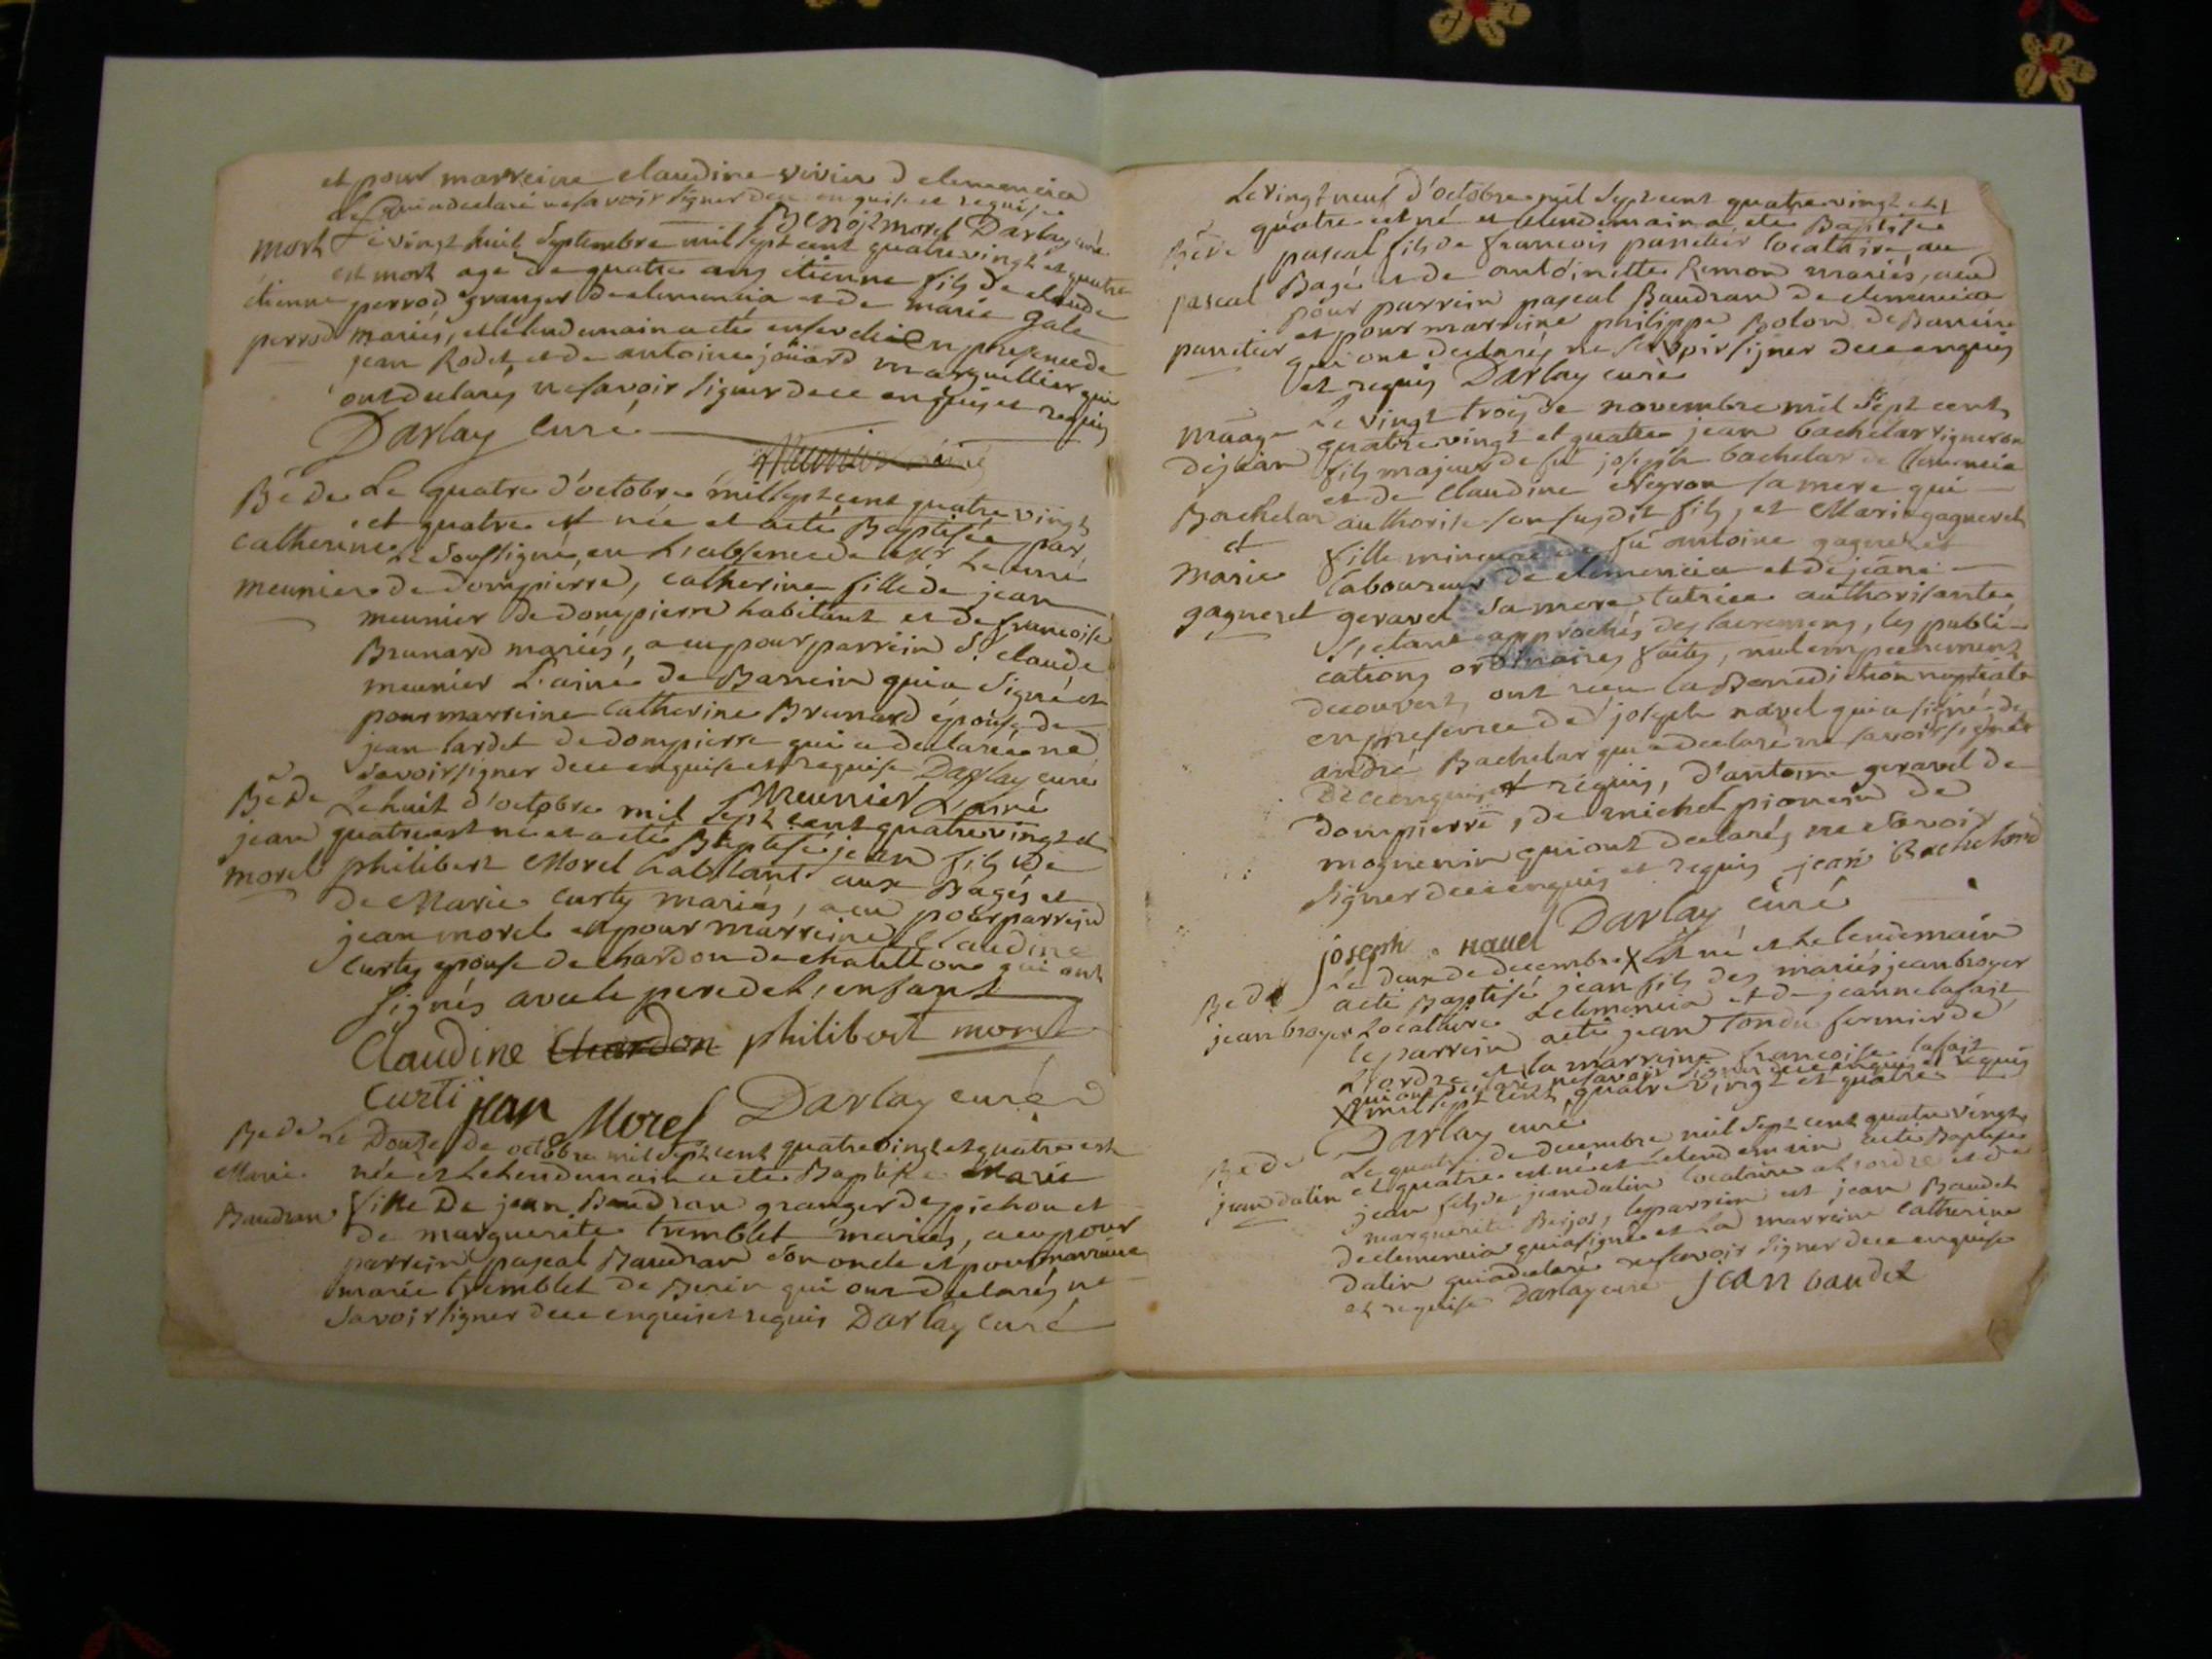 et pour marreine claudine vivier d clemencia
qui a declaré ne savoir signer de ce enquise et requise
Benoit morel Darlay curé
mort Le vingt huit Septembre mil sept cent quatre vingt et quatre
est mort agé de quatre ans etienne fils de claude
etienne perrod granger de clemencia et de marie gale
perrod mariés, et le lendemain a été enseveli en presence de
jean Rodet et de antoine joüard marguillier qui
ont declarés ne savoir signer de ce enquis et requis
Darlay curé
Bê de Le quatre d'octobre mil sept cent quatre vingt
et quatre est née et a été Baptisée par
catherine Le soussigné, en L'absence de Mr Le curé
meunier de dompierre, catherine fille de jean
meunier de dompierre habitant et de francoise
Brunard mariés, a eu pour parrein Sr claude
meunier L'ainé de Barrein qui a signé et
pour marreine Catherine Brunard épouse de
jean lardet de dompierre qui a declarée ne
savoir signer de ce enquise et requise Darlay curé
Meunier L'ainé
Bê de Le huit d'octobre mil sept cent quatre vingt et
jean quatre est né et a été Baptisé jean fils de
morel philibert Morel habitant aux Bagés et
de Marie Curty mariés, a eu pour parrein
jean morel et pour marreine Claudine
Curty epouse de chardon de chatillon qui ont
signés avec le pere de L'enfant
Claudine Chardon philibert morel
Curti jean Morel Darlay curé
Bê de Le Douze de octobre mil sept cent quatre vingt et quatre est
Marie née et Le lendemain a été Baptisée Marie
Baudran fille De jean Baudran granger de pichon et
de marguerite tremblet mariés, a eu pour
parrein pascal Baudran son oncle et pour marreine
marie tremblet de Berein qui ont declarés ne
savoir signer de ce enquis et requis Darlay curé
Le vingt neuf d'octobre mil sept cent quatre vingt et
quatre est né et le lendemain a été Baptisé
Bê de pascal fils de francois panetier locataire au
pascal Bagé et de antoinette Remond mariés, a eu
pour parrein pascal Baudran de clemencia
panetier et pour marreine philippe Bolon de Barrein
qui ont declarés ne savoir signer de ce enquis
et requis Darlay curé
Le vingt trois de novembre mil sept cent
mãage quatre vingt et quatre jean bachelar vigneron
de jean fils majeur de fû joseph bachelar de clemencia
et de Claudine Negron sa mere qui
Bachelar authorise son susdit fils, et Marie gagneret
et fille mineure de fû antoine gagneret
Marie laboureur de clemencia et de jeane
gagneret geravel sa mere tutrice authorisante
s'etant approchés des sacremens, les publi-
cations ordinaires faites, nul empechement
decouvert, ont reçu la Benediction nuptiale
en presence de joseph navel qui a signé de
andré Bachelar qui a declaré ne savoir signer
de ce enquis et requis, d'antoine geravel de
dompierre, de michel pionnin de
mognenein qui ont declarés ne savoir
signer de ce enquis et requis jean Bachelard
joseph navel Darlay curé
Bê de Le deux de decembre X est né et Le lendemain
a été Baptisé jean fils des mariés jean broyer
jean broyer Locataire a clemencia et de jeanne lafait
le parrein a été jean tondu fermier de
L'ordre et la marreine francoise lafait
qui ont declarés ne savoir signer de ce enquis et requis
X mil sept cent quatre vingt et quatre
Darlay curé
Bê de Le quatre de decembre mil sept cent quatre vingt
jean dalin et quatre est né et Le lendemain a été Baptisé
jean fils de jean dalin locataire a L'ordre et de
marguerite Berjot, le parrein est jean Baudet
de clemencia qui a signé et La marreine catherine
dalin qui a declaré ne savoir signer de ce enquise
et requise Darlay curé jean baudet